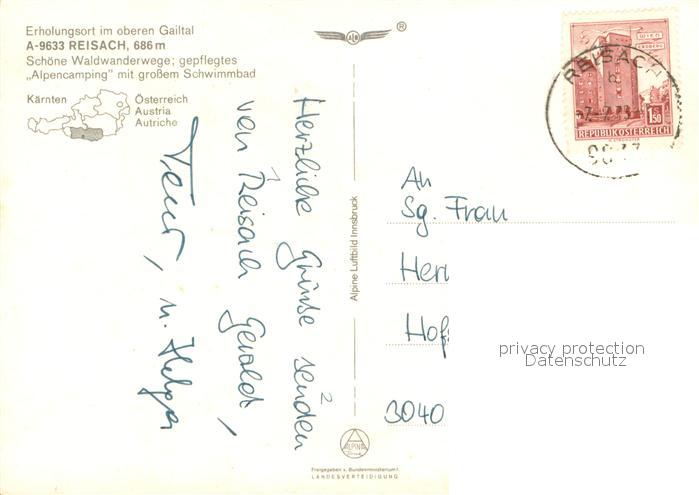 Erholungsort im oberen Gailtal
A-9633 REISACH, 686 m
Schöne Waldwanderwege; gepflegtes
„Alpencamping" mit großem Schwimmbad
Kärnten
Österreich
Austria
Autriche
Herzliche Grüße senden
von Reisach Gerald,
u. Helga
Alpine Luftbild Innsbruck
ALPINE
Freigegeben v. Bundesministerium f.
LANDESVERTEIDIGUNG
®
WIEN
ERDBERG
1.50
REPUBLIK ÖSTERREICH
REISACH
An
Sg. Frau
Her
Hof
3040
privacy protection
Datenschutz